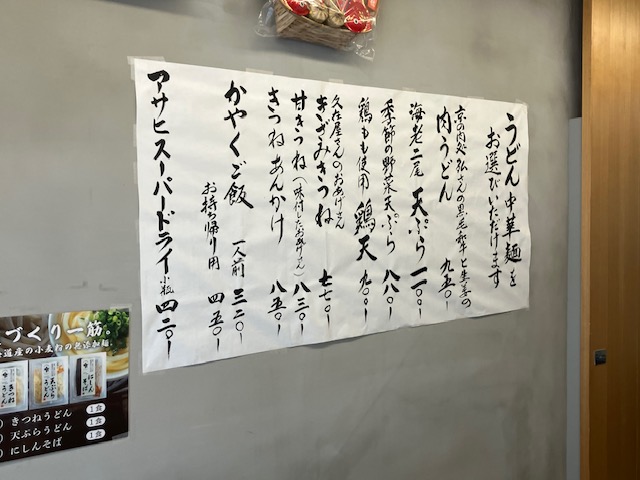 うどん 中華麺を
お選びいただけます
京の肉処弘さんの黒毛和牛と生姜の
肉うどん 九五〇ー
海老二尾 天ぷら 一一〇〇ー
季節の野菜天ぷら 八八〇ー
鶏もも使用 鶏天 九〇〇ー
久在屋さんのおあげさん
きざみきつね 七七〇ー
甘きつね(味付したおあげさん) 八三〇ー
きつねあんかけ 八五〇ー
かやくご飯 一人前 三二〇ー
お持ち帰り用 四五〇ー
アサヒスーパードライ 小瓶 四二〇ー
づくり一筋。
道産の小麦粉の無添加麺。
きつねうどん 1食
天ぷらうどん 1食
にしんそば 1食